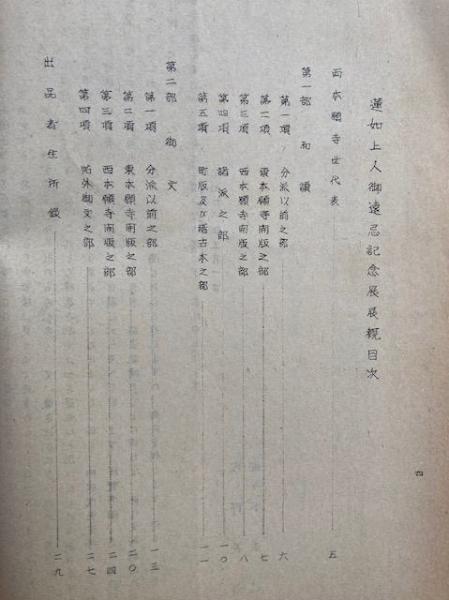 蓮如上人御遠忌記念展展観目次
西本願寺世代表 五
第一部 和讃
第一項 分派以前之部 六
第二項 東本願寺開版之部 七
第三項 西本願寺開版之部 八
第四項 諸派之部 一〇
第五項 町版及ビ稽古本之部 一一
第二部 御文
第一項 分派以前之部 一三
第二項 東本願寺開版之部 二〇
第三項 西本願寺開版之部 二四
第四項 帖外御文之部 二七
出品者住所録 二九
四